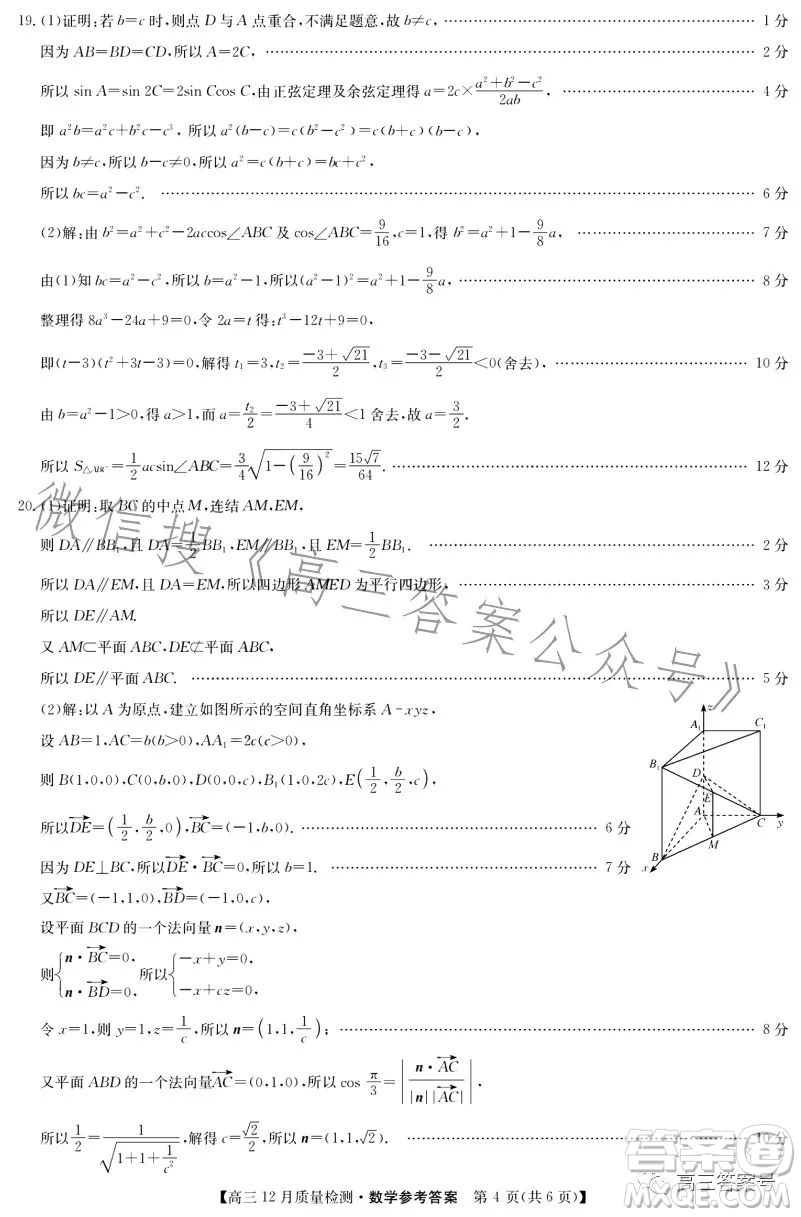 19. (1)证明:若 b=c 时,则点 D 与 A 点重合,不满足题意,故 b≠c, …… 1 分
因为 AB=BD=CD,所以 A=2C, …… 2 分
所以 sin A=sin 2C=2sin Ccos C,由正弦定理及余弦定理得 a=2c×(a²+b²−c²)/(2ab), …… 4 分
即 a²b=a²c+b²c−c³, 所以 a²(b−c)=c(b²−c²)=c(b+c)(b−c),
因为 b≠c,所以 b−c≠0,所以 a²=c(b+c)=bc+c²,
所以 bc=a²−c². …… 6 分
(2)解:由 b²=a²+c²−2accos∠ABC 及 cos∠ABC=9/16,c=1,得 b²=a²+1−9/8a, …… 7 分
由(1)知 bc=a²−c²,所以 b=a²−1,所以(a²−1)²=a²+1−9/8a, …… 8 分
整理得 8a³−24a+9=0,令 2a=t 得:t³−12t+9=0,
即(t−3)(t²+3t−3)=0,解得 t₁=3,t₂=(−3+√21)/2,t₃=(−3−√21)/2<0(舍去), …… 10 分
由 b=a²−1>0,得 a>1,而 a=t₂/2=(−3+√21)/4<1 舍去,故 a=3/2.
所以 S△ABC=1/2acsin∠ABC=3/4√(1−(9/16)²)=15√7/64. …… 12 分
20. (1)证明:取 BC 的中点 M,连结 AM,EM,
则 DA∥BB₁,且 DA=1/2BB₁,EM∥BB₁,且 EM=1/2BB₁. …… 2 分
所以 DA∥EM,且 DA=EM,所以四边形 AMED 为平行四边形, …… 3 分
所以 DE∥AM.
又 AM⊂平面 ABC,DE⊄平面 ABC,
所以 DE∥平面 ABC. …… 5 分
(2)解:以 A 为原点,建立如图所示的空间直角坐标系 A−xyz,
设 AB=1,AC=b(b>0),AA₁=2c(c>0),
则 B(1,0,0),C(0,b,0),D(0,0,c),B₁(1,0,2c),E(1/2,b/2,c),
所以DE→=(1/2,b/2,0),BC→=(−1,b,0). …… 6 分
因为 DE⊥BC,所以DE→·BC→=0,所以 b=1. …… 7 分
又BC→=(−1,1,0),BD→=(−1,0,c),
设平面 BCD 的一个法向量 n=(x,y,z),
则{n·BC→=0, n·BD→=0, 所以{−x+y=0, −x+cz=0,
令 x=1,则 y=1,z=1/c,所以 n=(1,1,1/c); …… 8 分
又平面 ABD 的一个法向量AC→=(0,1,0),所以 cos π/3=|n·AC→/(|n||AC→|)|,
所以1/2=1/√(1+1+1/c²),解得 c=√2/2,所以 n=(1,1,√2). …… 10 分
z
A₁
C₁
B₁
D
E
A
C
y
M
B
x
【高三 12 月质量检测·数学参考答案 第 4 页(共 6 页)】
微信搜《高三答案公众号》
答案圈
高三答案号
MXQE.COM